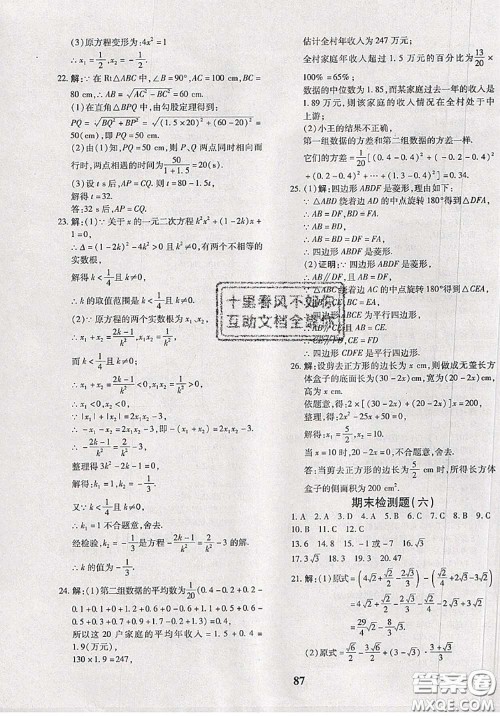 (3)原方程变形为:4x²=1
∴x₁=1/2,x₂=-1/2.
22.解:∵在Rt△ABC中,∠B=90°,AC=100 cm,BC=
80 cm,∴AB=√(AC²-BC²)=60(cm).
(1)在直角△BPQ中,由勾股定理得到:
PQ=√(BQ²+BP²)=√((1.5×20)²+(60-20)²)=
50(cm),即PQ=50 cm.
(2)由(1)知,PQ=50 cm,P、Q两点同时相向而
行时,两点相遇的时间为50/(1+1.5)=20(s).
(3)设t s后,AP=CQ.则t=80-1.5t,
解得t=32.
答:32 s后,AP=CQ.
23.解:(1)∵关于x的一元二次方程k²x²+(1-2k)x+
1=0,
∴Δ=(1-2k)²-4k²>0时,方程有两个不相等的
实数根,
解得k<1/4且k≠0.
∴k的取值范围是k<1/4且k≠0.
(2)∵方程的两个实数根为x₁,x₂,
∴x₁+x₂=-(1-2k)/k²=(2k-1)/k²,
而k<1/4,
∴x₁+x₂<0,
∵x₁·x₂=1/k²>0,
∴x₁<0,x₂<0,
∵|x₁|+|x₂|-2x₁x₂=-3,
∴-x₁-x₂-2x₁x₂=-3,
∴-(2k-1)/k²-2/k²=-3,
整理得3k²-2k-1=0,
解得k₁=1,k₂=-1/3.
又∵k<1/4且k≠0,
∴k₁=1不合题意,舍去.
经检验,k₂=-1/3是方程-(2k-1)/k²-2/k²=-3的解.
∴k的值为-1/3.
24.解:(1)第二组数据的平均数为1/20(0.4-0.2+0.2-
所以这20户家庭的平均年收入=1.5+0.4=
1.9(万元),
130×1.9=247,
估计全村年收入为247万元;
全村家庭年收入超过1.5万元的百分比为13/20×
100%=65%;
数据的中位数为1.5+(0.4+0.38)/2
1.89万元,则该家庭的收入情况在全村处于中
上游;
(2)小王的结果不正确.
第一组数据的方差和第二组数据的方差一样.
它们的方差=1/20[(0.4-0.4)²+(-0.2-0.4)²+
(0.2-0.4)²+…
25.(1)解:四边形ABDF是菱形,理由如下:
∵△ABD绕着边AD的中点旋转180°得到△DFA,
∴AB=DF,BD=FA.
∵AB=BD,
∴AB=BD=DF=FA.
∴四边形ABDF是菱形.
(2)证明:∵四边形ABDF是菱形,
∴AB∥DF,且AB=DF.
∵△ABC绕着边AC的中点旋转180°得到△CEA,
∴AB=CE,BC=EA,
∴四边形ABCE为平行四边形,
∴AB∥CE,且AB=CE,
∴CE∥FD,CE=FD,
∴四边形CDFE是平行四边形.
26.解:设剪去正方形的边长为x cm,则做成无盖长方
体盒子的底面长为(30-2x)cm,宽为(20-2x)cm,
高为x cm.
依题意,得:2×[(30-2x)+(20-2x)]x=200,
整理,得:2x²-25x+50=0,
解得:x₁=5/2,x₂=10.
当x=10时,20-2x=0,不合题意,舍去.
答:当剪去正方形的边长为5/2 cm时,所得长方体
盒子的侧面积为200 cm².
期末检测题(六)
10.B 11.A 12.C
13.6 14.-4 15.-6 16.√3
17.3√3 18.3√3 19.3/2 20.2√13
21.解:(1)原式=(4√2/2+√2/2)-(√2/2+√2-3√3)=
4√2+√2/2-√2/2-√2+3√3=3√2+3√3
(2)原式=√6/2·2/√3-(3+√3)/√3
87
十里春风不如你
互助文档全靠你
答案圈
MXQE.COM